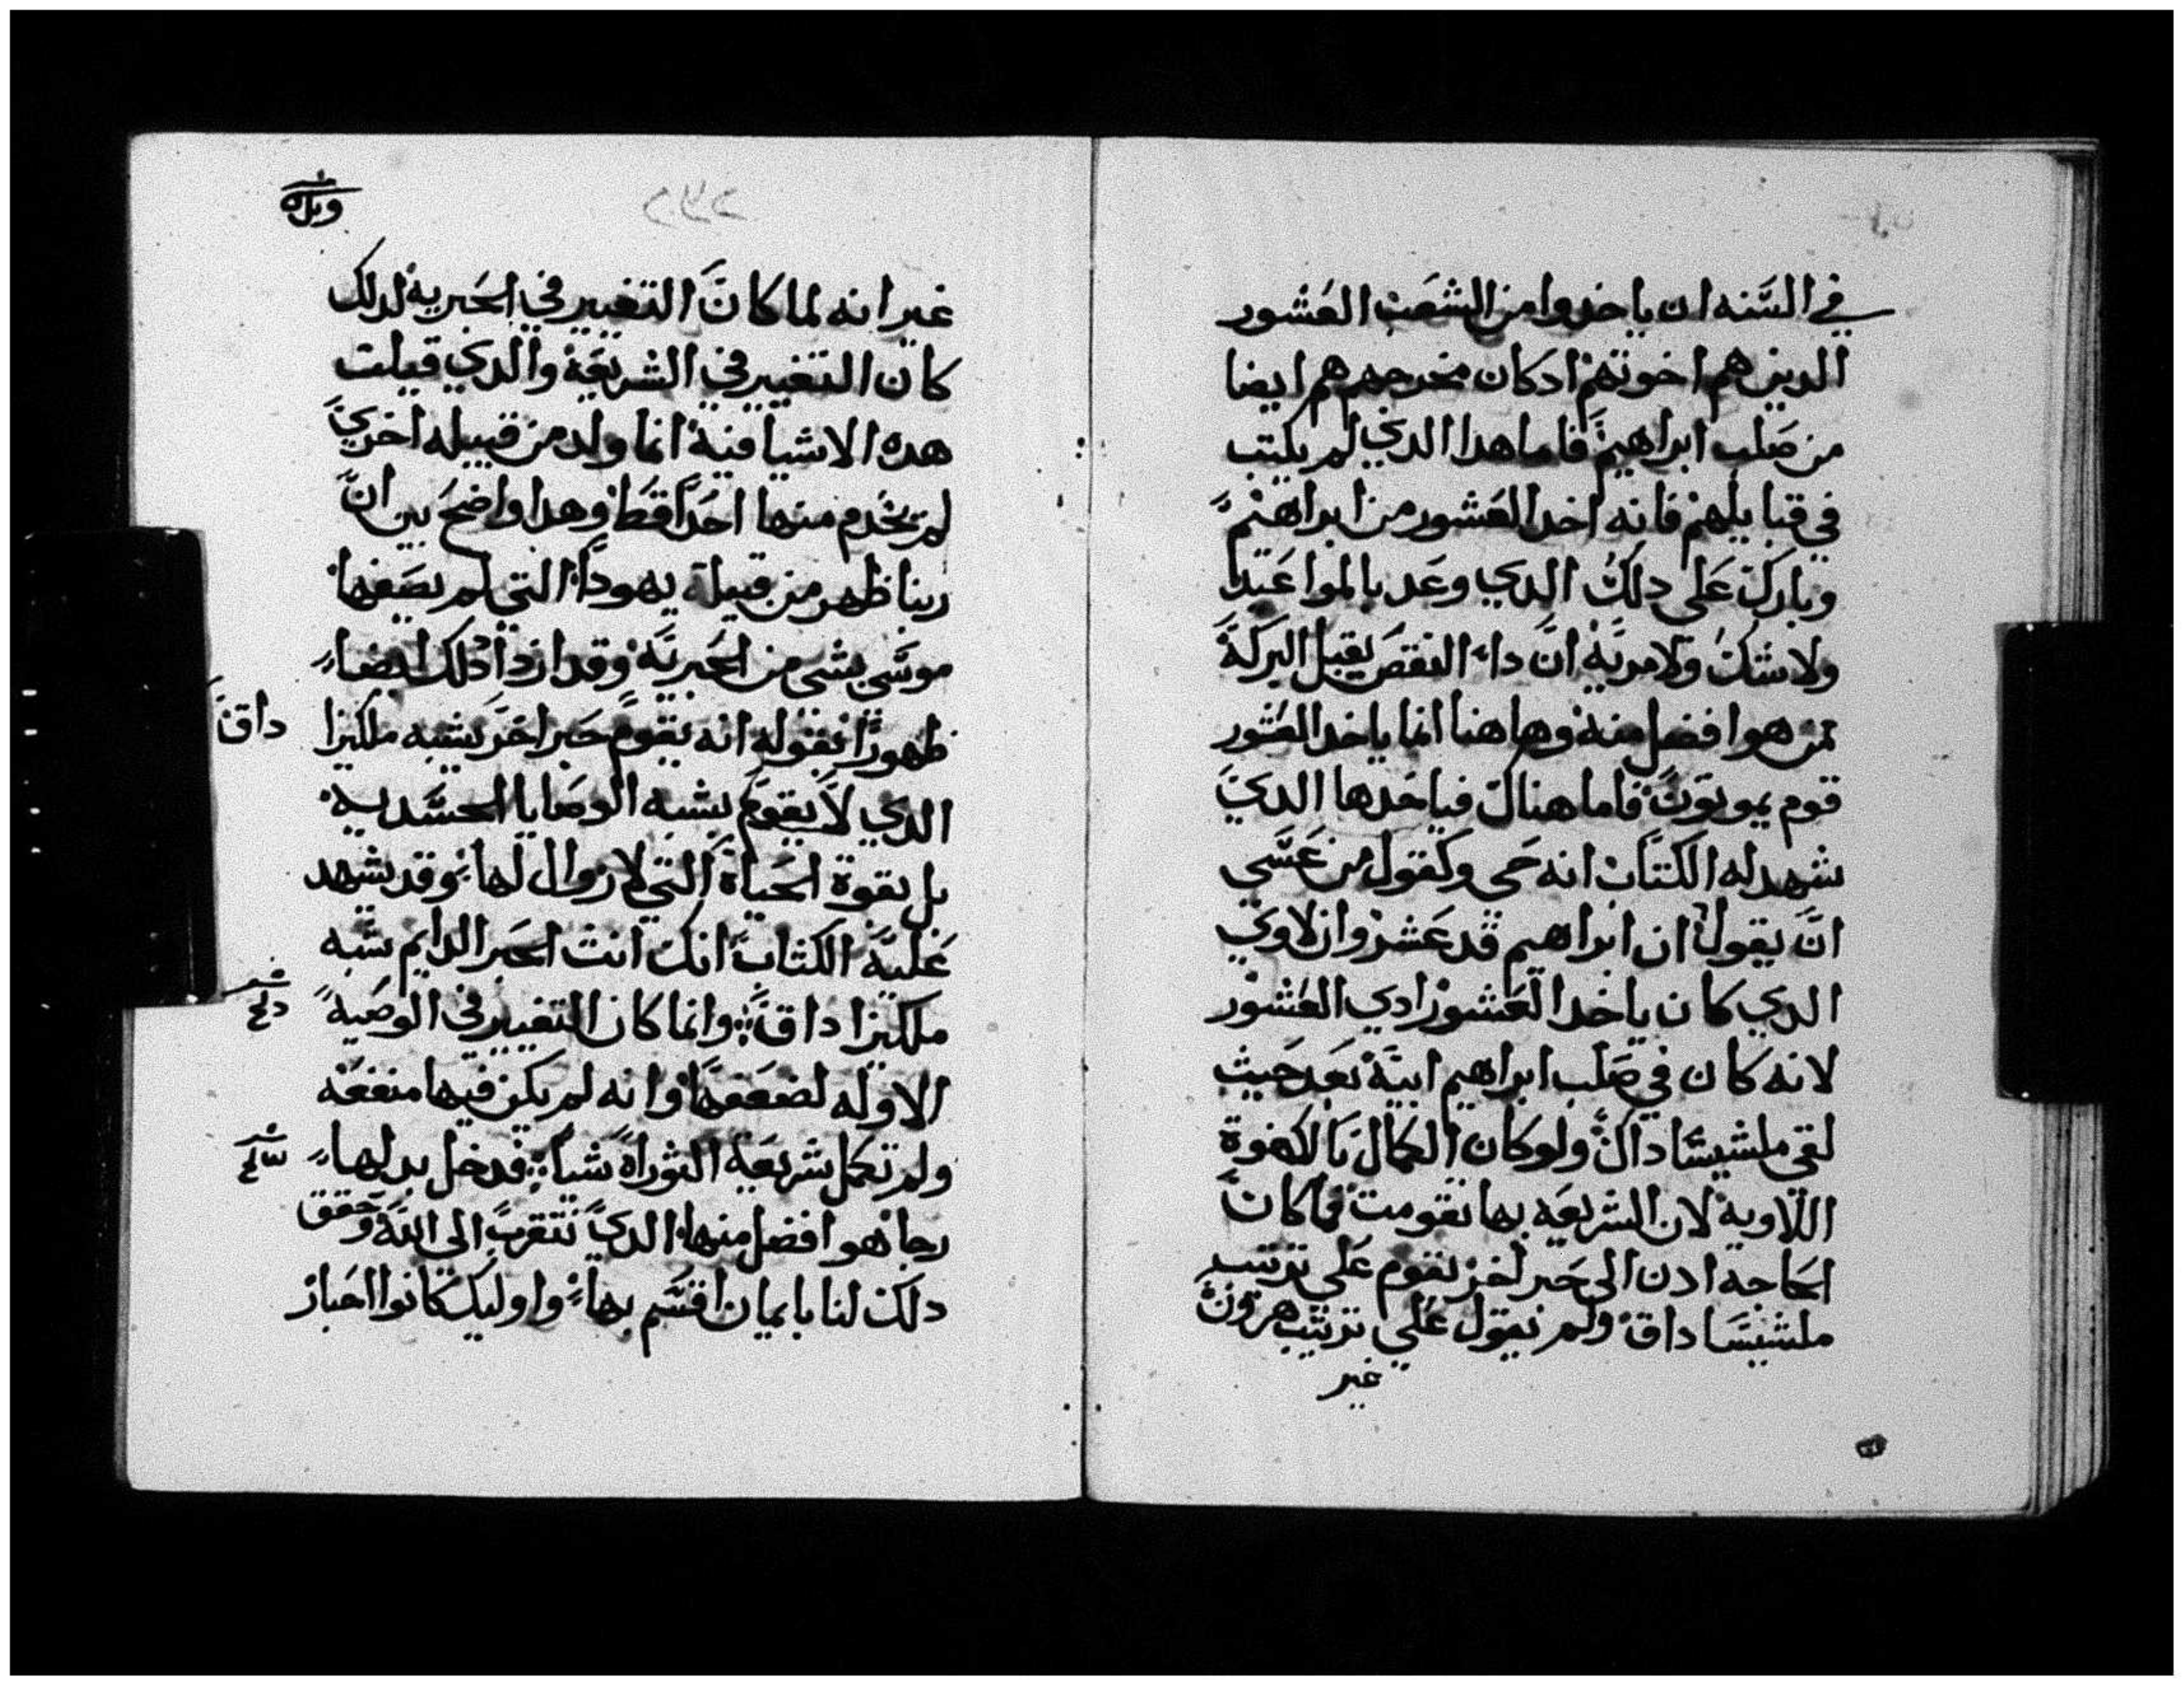 في السنه ان ياخدوا من الشعب العشور
الدين هم اخوتهم ادكان مخرجهم هم ايضا
من صلب ابراهيم فاما هدا الدي لم يكتب
في قبايلهم فانه اخد العشور من ابراهيم
وبارك على دلك الدي وعد بالمواعيد
ولا شك ولا مرية ان داء النقص يقبل البركة
ممن هو افضل منه وهاهنا انما ياخد العشور
قوم يموتون فاما هناك فياخدها الدي
شهد له الكتاب انه حي وكقول من عسى
ان يقول ان ابراهيم قد عشر وان لاوي
الدي كان ياخد العشور ادي العشور
لانه كان في صلب ابراهيم ابيه بعد حيث
لقي ملشيسا داك ولو كان الكمال بالكهوة
اللاوية لان الشريعه بها تقومت فما كان
الحاجه ادن الى حبر اخر يقوم على ترتيب
ملشيسا داق ولم يقول على ترتيب هرون
غير
غير انه لما كان التغيير في الحبرية لدلك
كان التغيير في الشريعة والدي قيلت
هده الاشيا فيه انما ولد من قبيله اخري
لم يخدم منها احدا قط وهدا واضح بين ان
ربنا ظهر من قبيلة يهودا التي لم يصفها
موسى بشي من الحبرية وقد ازداد دلك ايضا
ظهورا بقوله انه يقوم حبر اخر يشبه ملكيزا
داق
الدي لا يقوم بشبه الوصايا الجسدانيه
بل بقوة الحياة التي لا زوال لها وقد يشهد
عليه الكتاب انك انت الحبر الدايم شبه
ملكيزا داق وانما كان التغيير في الوصية
الاوله لضعفها وانه لم يكن فيها منفعه
ولم تكمل شريعة التوراه شيا فدخل بدلها
رجا هو افضل منها الدي نتقرب الى الله وحقق
دلك لنا بايمان اقسم بها واوليك كانوا احبار